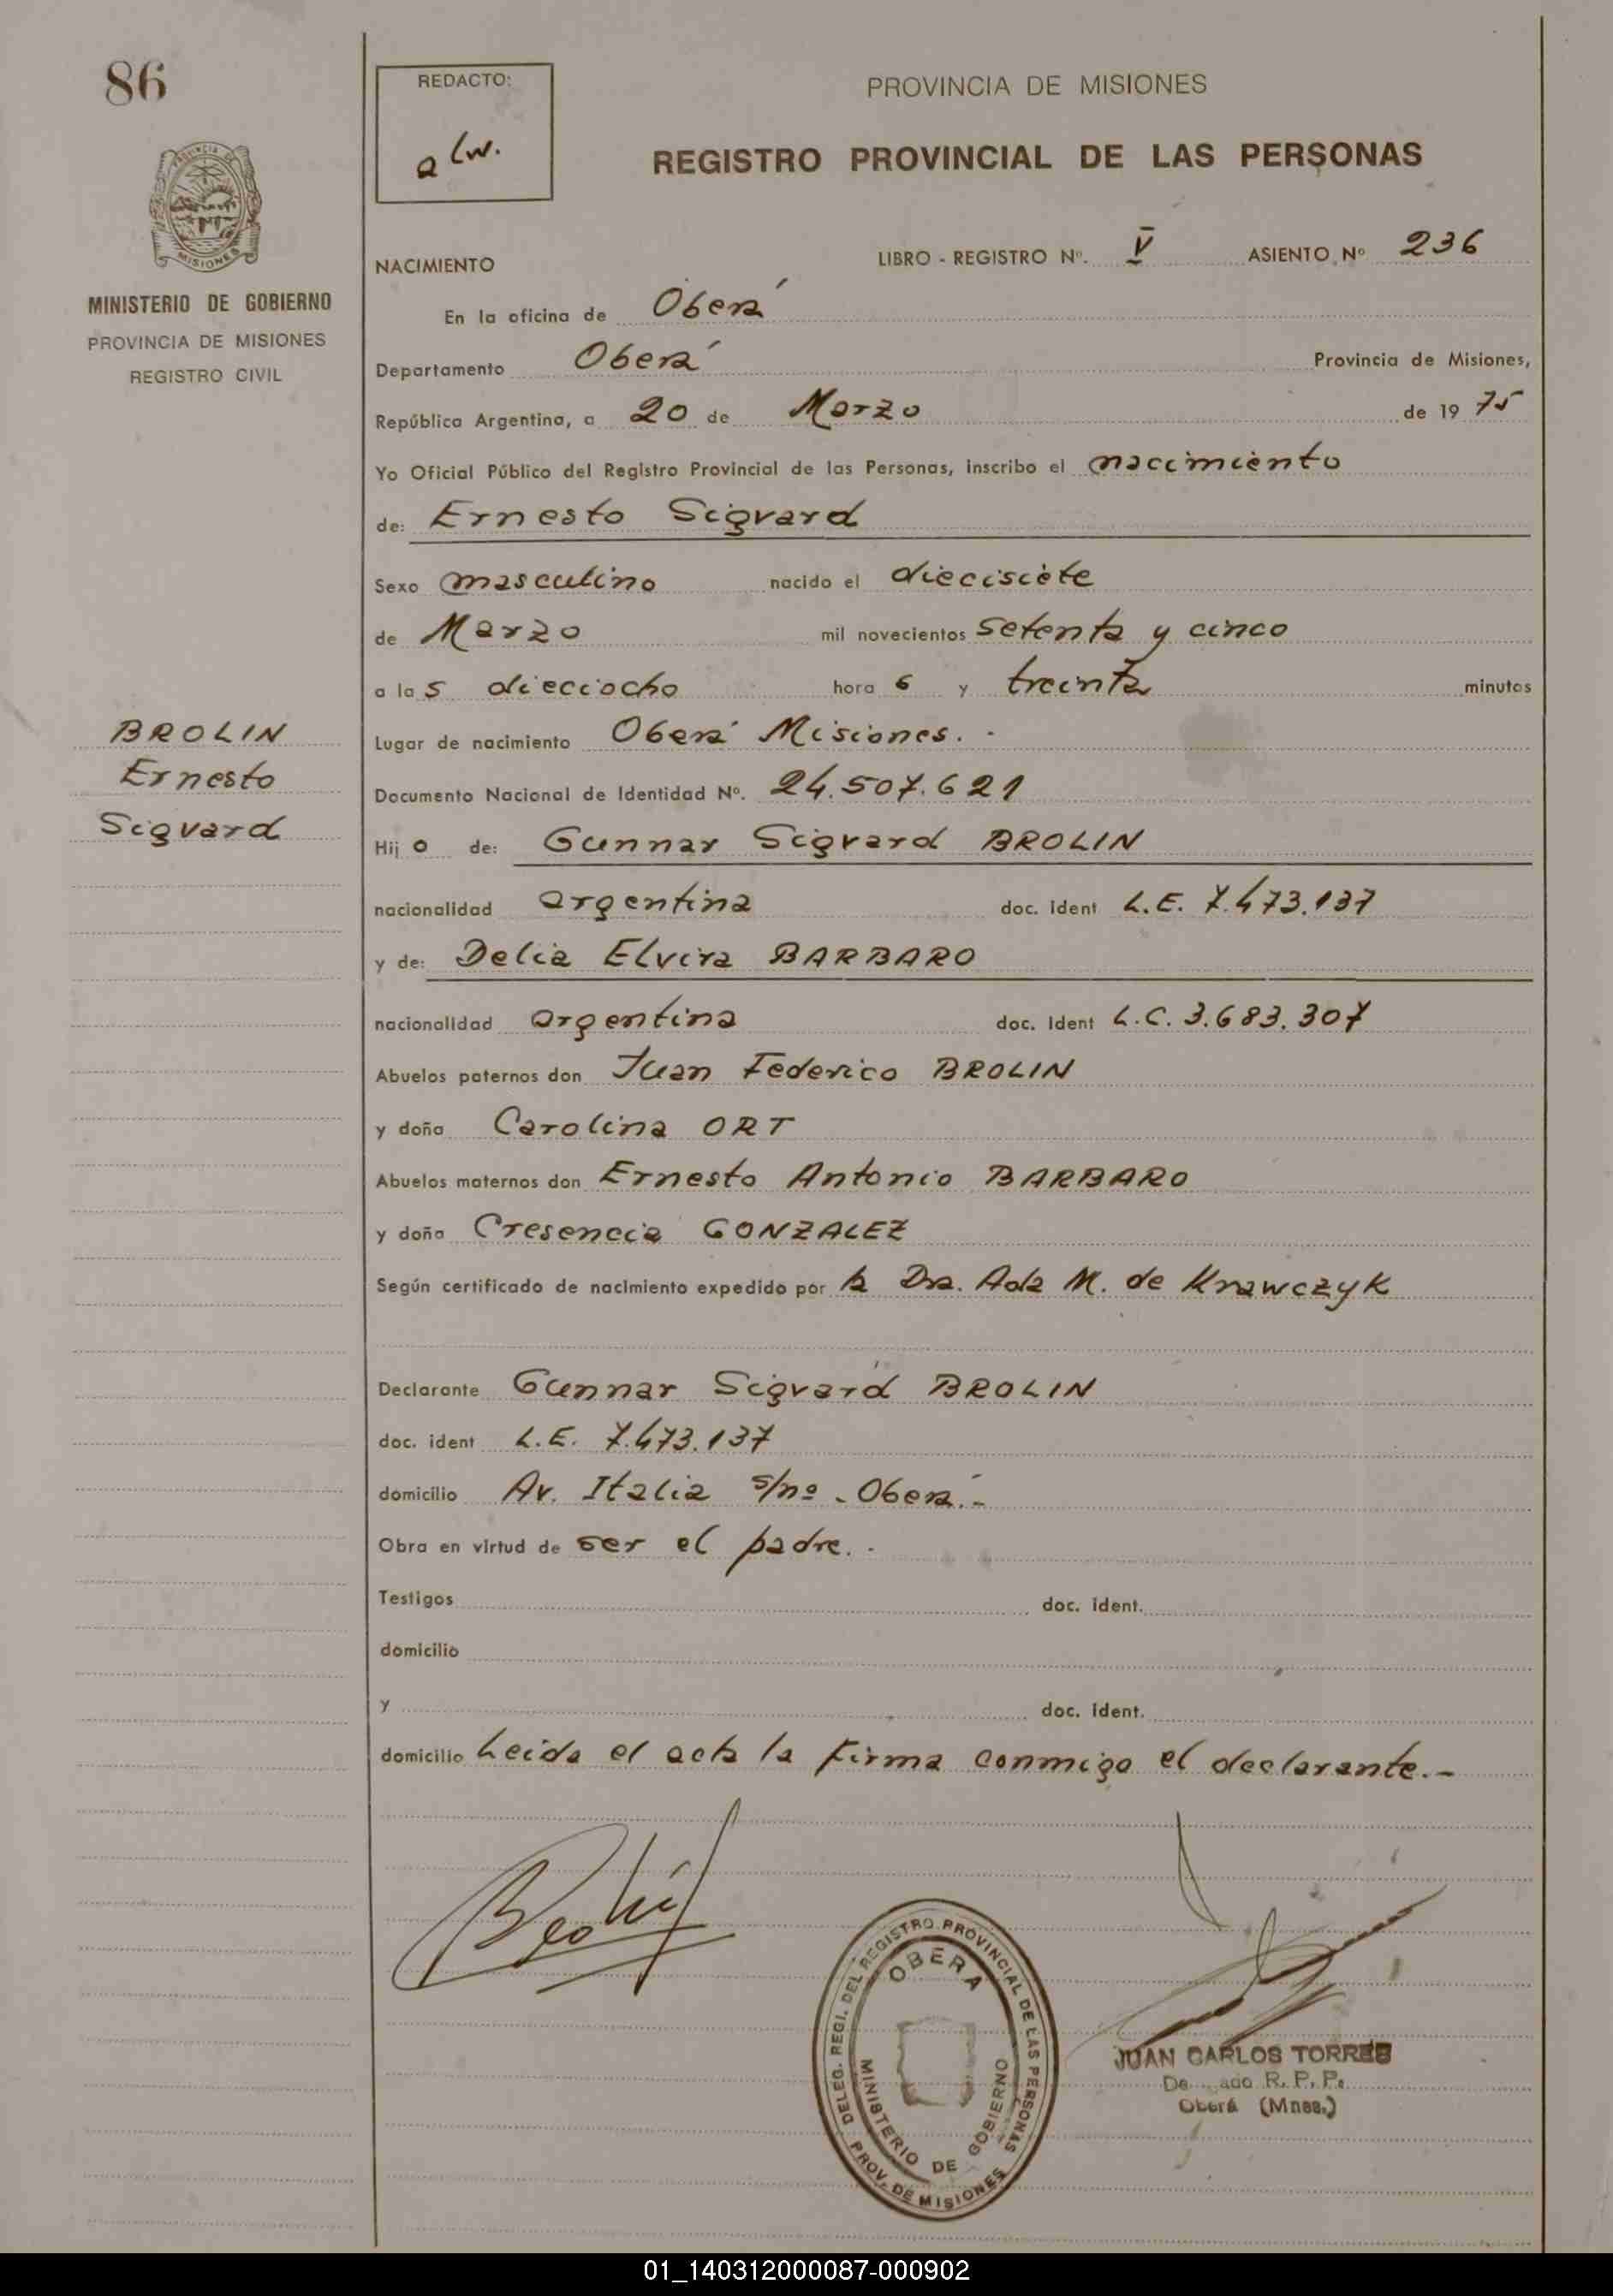 86
REDACTO:
alw.
PROVINCIA DE MISIONES
REGISTRO PROVINCIAL DE LAS PERSONAS
PROVINCIA DE
MISIONES
MINISTERIO DE GOBIERNO
PROVINCIA DE MISIONES
REGISTRO CIVIL
NACIMIENTO
LIBRO - REGISTRO Nº. V ASIENTO Nº 236
En la oficina de Oberá
Departamento Oberá Provincia de Misiones,
República Argentina, a 20 de Marzo de 19 75
Yo Oficial Público del Registro Provincial de las Personas, inscribo el nacimiento
de: Ernesto Sigvard
Sexo masculino nacido el diecisiete
de Marzo mil novecientos setenta y cinco
a las dieciocho horas y treinta minutos
BROLIN
Ernesto
Sigvard
Lugar de nacimiento Oberá Misiones.-
Documento Nacional de Identidad Nº. 24.507.621
Hijo de: Gunnar Sigvard BROLIN
nacionalidad argentina doc. ident L.E. 7.473.137
y de: Delia Elvira BARBARO
nacionalidad argentina doc. ident L.C. 3.683.307
Abuelos paternos don Juan Federico BROLIN
y doña Carolina ORT
Abuelos maternos don Ernesto Antonio BARBARO
y doña Cresencia GONZALEZ
Según certificado de nacimiento expedido por la Dra. Ada M. de Krawczyk
Declarante Gunnar Sigvard BROLIN
doc. ident L.E. 7.473.137
domicilio Av. Italia s/nº - Oberá.-
Obra en virtud de ser el padre.-
Testigos doc. ident.
domicilio
y doc. ident.
domicilio Leida el acta la firma conmigo el declarante.-
DELEG. REGI. DEL REGISTRO PROVINCIAL DE LAS PERSONAS
OBERA
MINISTERIO DE GOBIERNO
PROV. DE MISIONES
JUAN CARLOS TORRES
R. P. P.
Oberá (Mnes.)
01_140312000087-000902